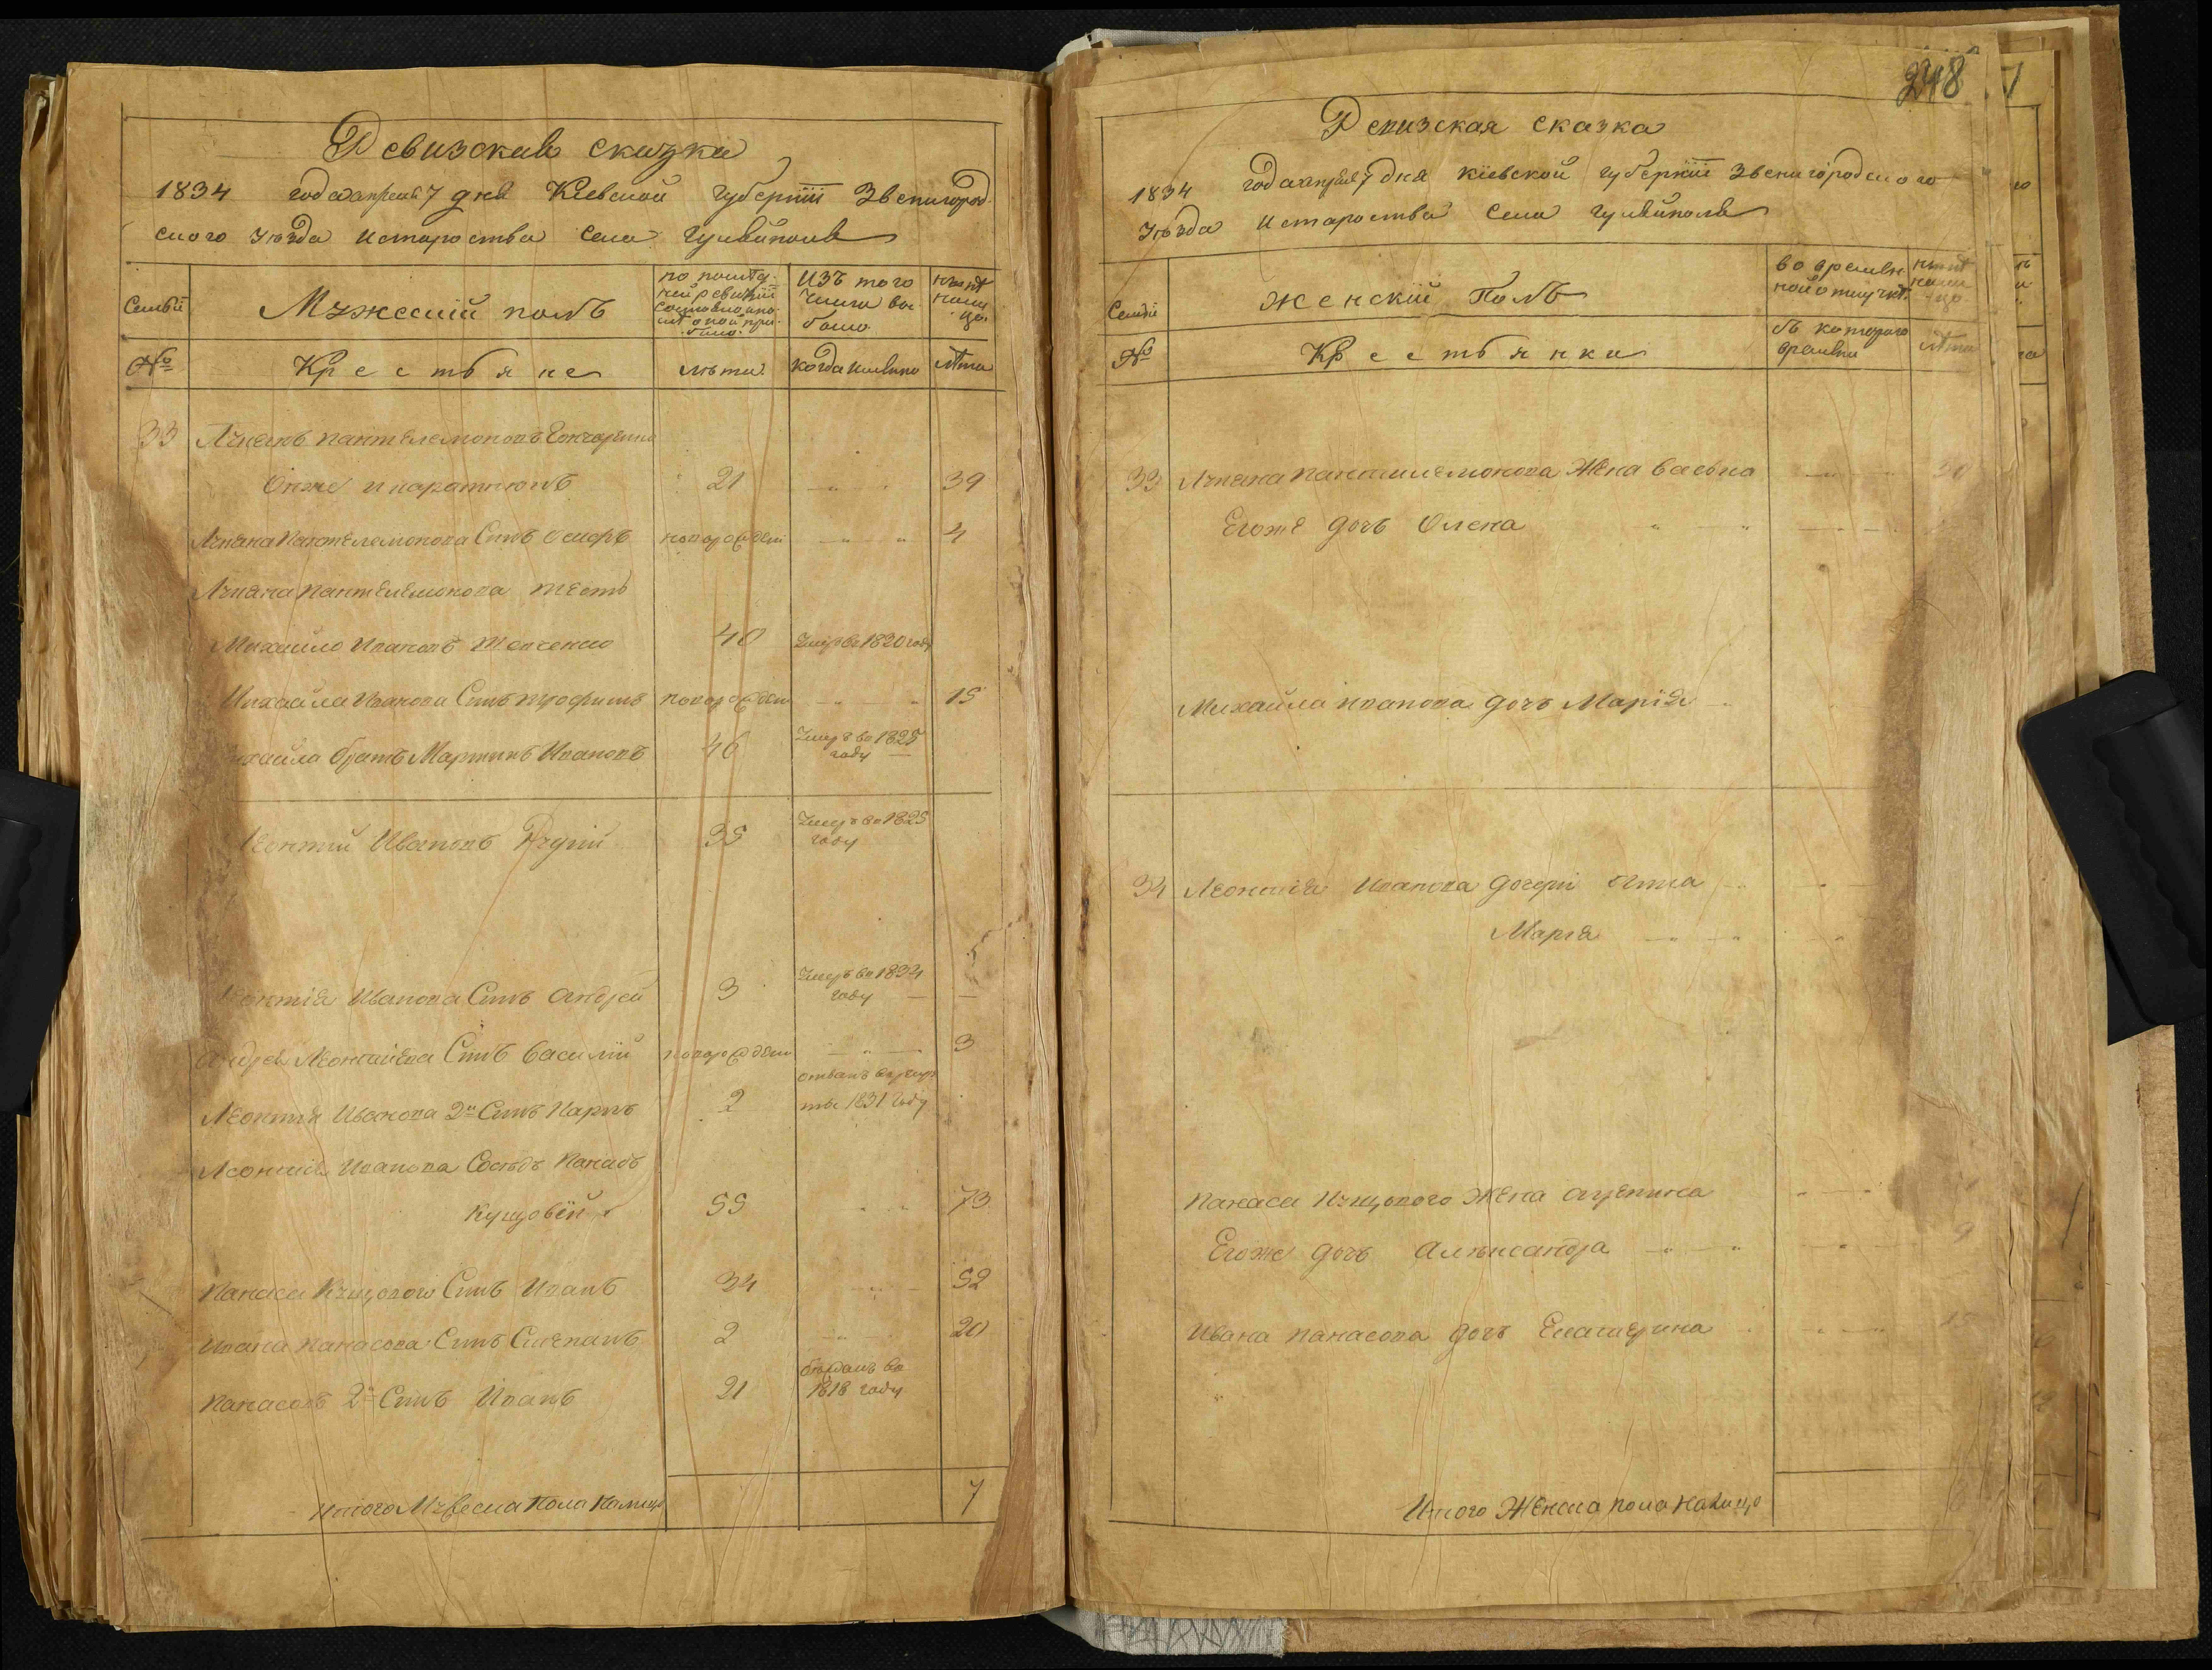 Ревизская сказка
1834 года апреля 7 дня Киевской губерніи Звенигород
ского уѣзда и староства села Гулѧйполя
Семьи
Мужескій полъ
по послѣд
ней ревизіи
состояло и по
слѣ оной при
было
Изъ того
числа вы
было
Нынѣ
нали
цо
№
Крестьяне
лѣта
когда именно
лѣта
33 Лукянъ Пантелемоновъ Гончаренко
Онже и паратнюкъ 21 39
Лукяна Пантелемонова Сынъ новорожден 4
Лукяна Пантелемонова тесть
Михайло Ивановъ Шевченко 40 Умеръ во 1820 году
Михайла Иванова Сынъ Трофимъ новорожден 15
Михайла братъ Мартинъ Ивановъ 46 Умеръ во 1828
году
Леонтий Ивановъ Рудий 35 Умеръ во 1825
году
Леонтія Иванова Сынъ Андрей 3 Умеръ во 1834
году
Андрея Леонтиева Сынъ Василій новорожден 3
Леонтія Иванова 2й Сынъ Карпъ 2 отданъ в рекру
ты 1831 году
Леонтія Иванова Сосѣдъ Панасъ
Кущовій 55 73
Панаса Кущового Сынъ Иванъ 34 52
Ивана Панасова Сынъ Степанъ 2 20
Панасовъ 2й Сынъ Иванъ 21
1818 году
Итого Мужеска Пола Налицо 7
248
Ревизская сказка
1834 года апреля 7 дня Киевской губерніи Звенигородского
уѣзда и староства села Гулѧйполя
Семьи
Женскій Полъ
во времен
ной отлучкѣ
нынѣ
нали
цо
№
Крестьянки
съ котораго
времени
лѣта
33 Лукяна Пантилемонова Жена Васѣна 30
Егоже дочь Олена
Михайла Иванова дочь Марія
34 Леонтія Иванова дочери Анна
Марія
Панаса Кущового Жена Агрепина
Егоже дочь Александра 9
Ивана Панасова дочь Екатерина 15
Итого Женска пола налицо